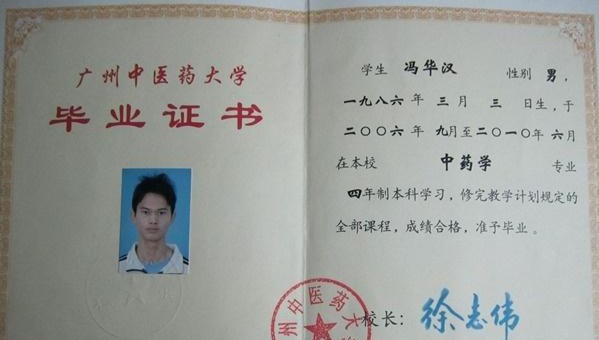 广州中医药大学
毕业证书
学生 冯华汉 性别 男，
一九八六年 三 月 三 日生，于
二〇〇六年 九月至二〇一〇年 六月
在本校 中药学 专业
四年制本科学习，修完教学计划规定的
全部课程，成绩合格，准予毕业。
州中医药大
校长：徐志伟